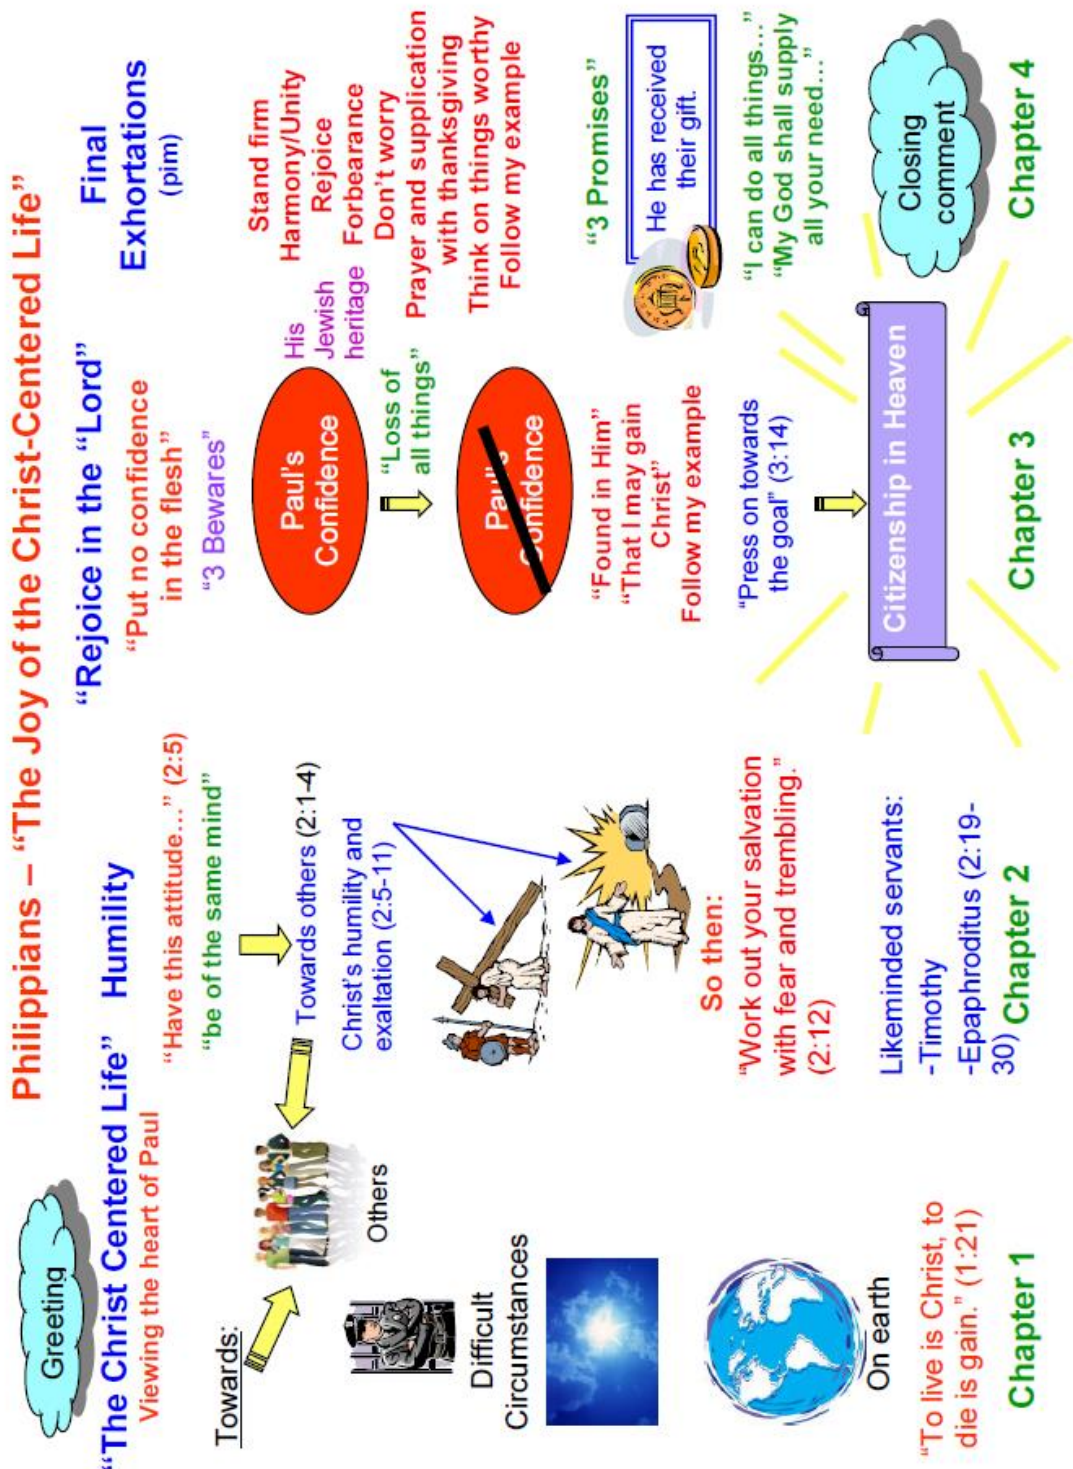 Philippians – “The Joy of the Christ-Centered Life”
Greeting
“The Christ Centered Life”
Viewing the heart of Paul
Towards:
Others
Difficult
Circumstances
On earth
“To live is Christ, to
die is gain.” (1:21)
Chapter 1
Humility
“Have this attitude…” (2:5)
“be of the same mind”
Towards others (2:1-4)
Christ’s humility and
exaltation (2:5-11)
So then:
“Work out your salvation
with fear and trembling.”
(2:12)
Likeminded servants:
-Timothy
-Epaphroditus (2:19-
30)
Chapter 2
“Rejoice in the “Lord”
“Put no confidence
in the flesh”
“3 Bewares”
Paul’s
Confidence
His
Jewish
heritage
“Loss of
all things”
Paul’s
Confidence
“Found in Him”
“That I may gain
Christ”
Follow my example
“Press on towards
the goal” (3:14)
Citizenship in Heaven
Chapter 3
Final
Exhortations
(pim)
Stand firm
Harmony/Unity
Rejoice
Forbearance
Don’t worry
Prayer and supplication
with thanksgiving
Think on things worthy
Follow my example
“3 Promises”
He has received
their gift.
“I can do all things…”
“My God shall supply
all your need…”
Closing
comment
Chapter 4